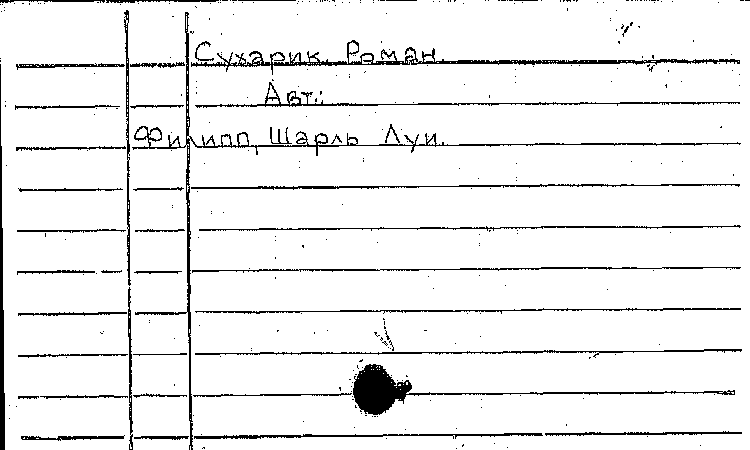 Сухарик. Роман.
Авт.:
Филипп, Шарль Луи.